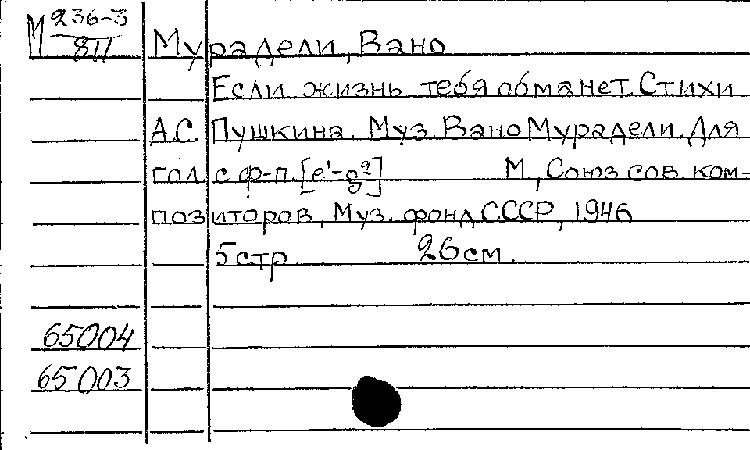 М 236-3
811
Мурадели, Вано
Если жизнь тебя обманет. Стихи
А.С. Пушкина. Муз. Вано Мурадели. Для
гол. с ф-п. [e¹-g²] М., Союз сов. ком-
позиторов, Муз. фонд СССР, 1946
5 стр. 26 см.
65004
65003